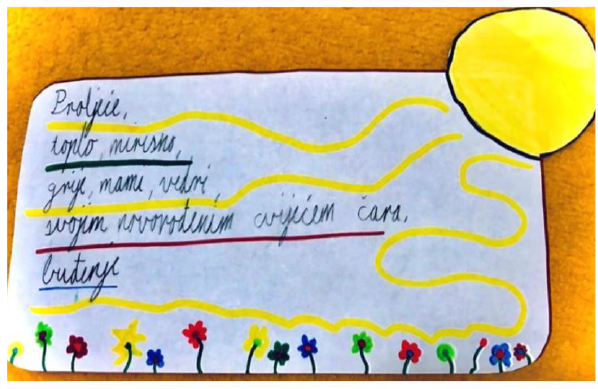 Proljeće,
toplo, mirisno,
grije, mami, vedri,
svojim novorođenim cvijećem čara,
buđenje